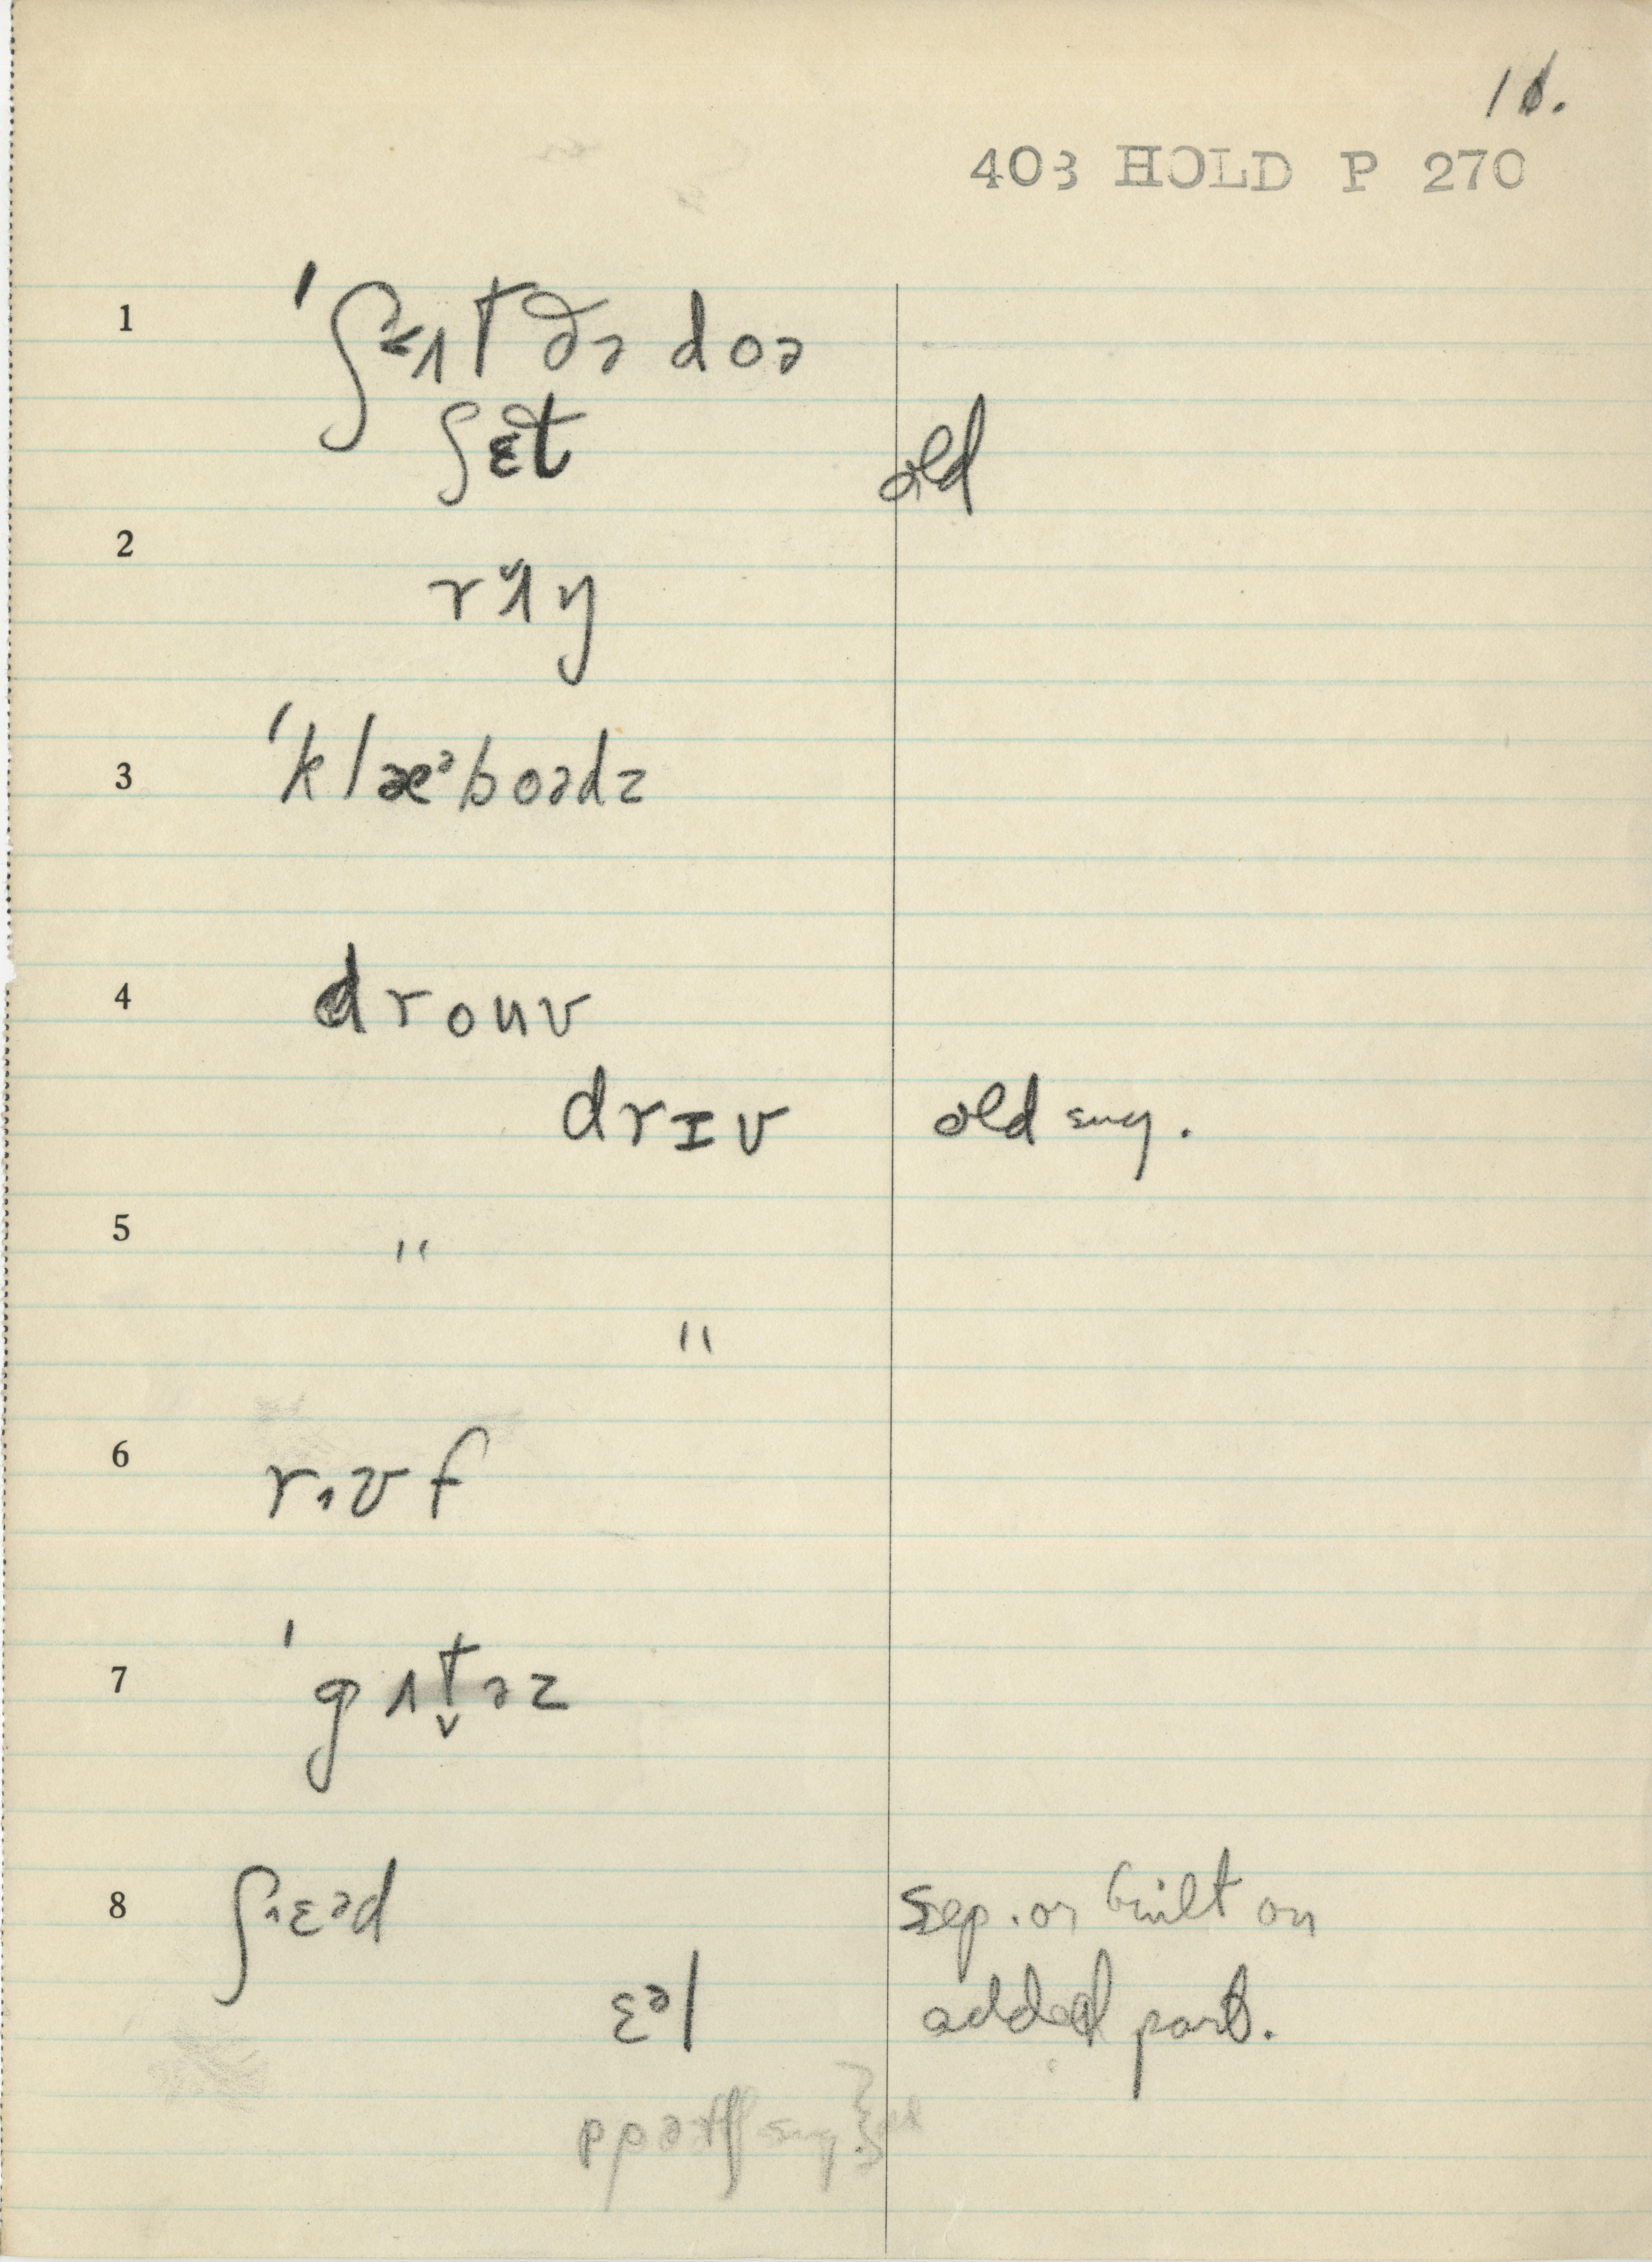 10.
403 HOLD P 270
1 ˈʃʌt ðə doə
ʃɛt old
2 rʌŋ
3 ˈklæᵊboədz
4 drouv
drɪv old sug.
5 "
"
6 rʊf
7 ˈgʌt̬əz
8 ʃɛᵊd sep. or built on
ɛᵊl added part.